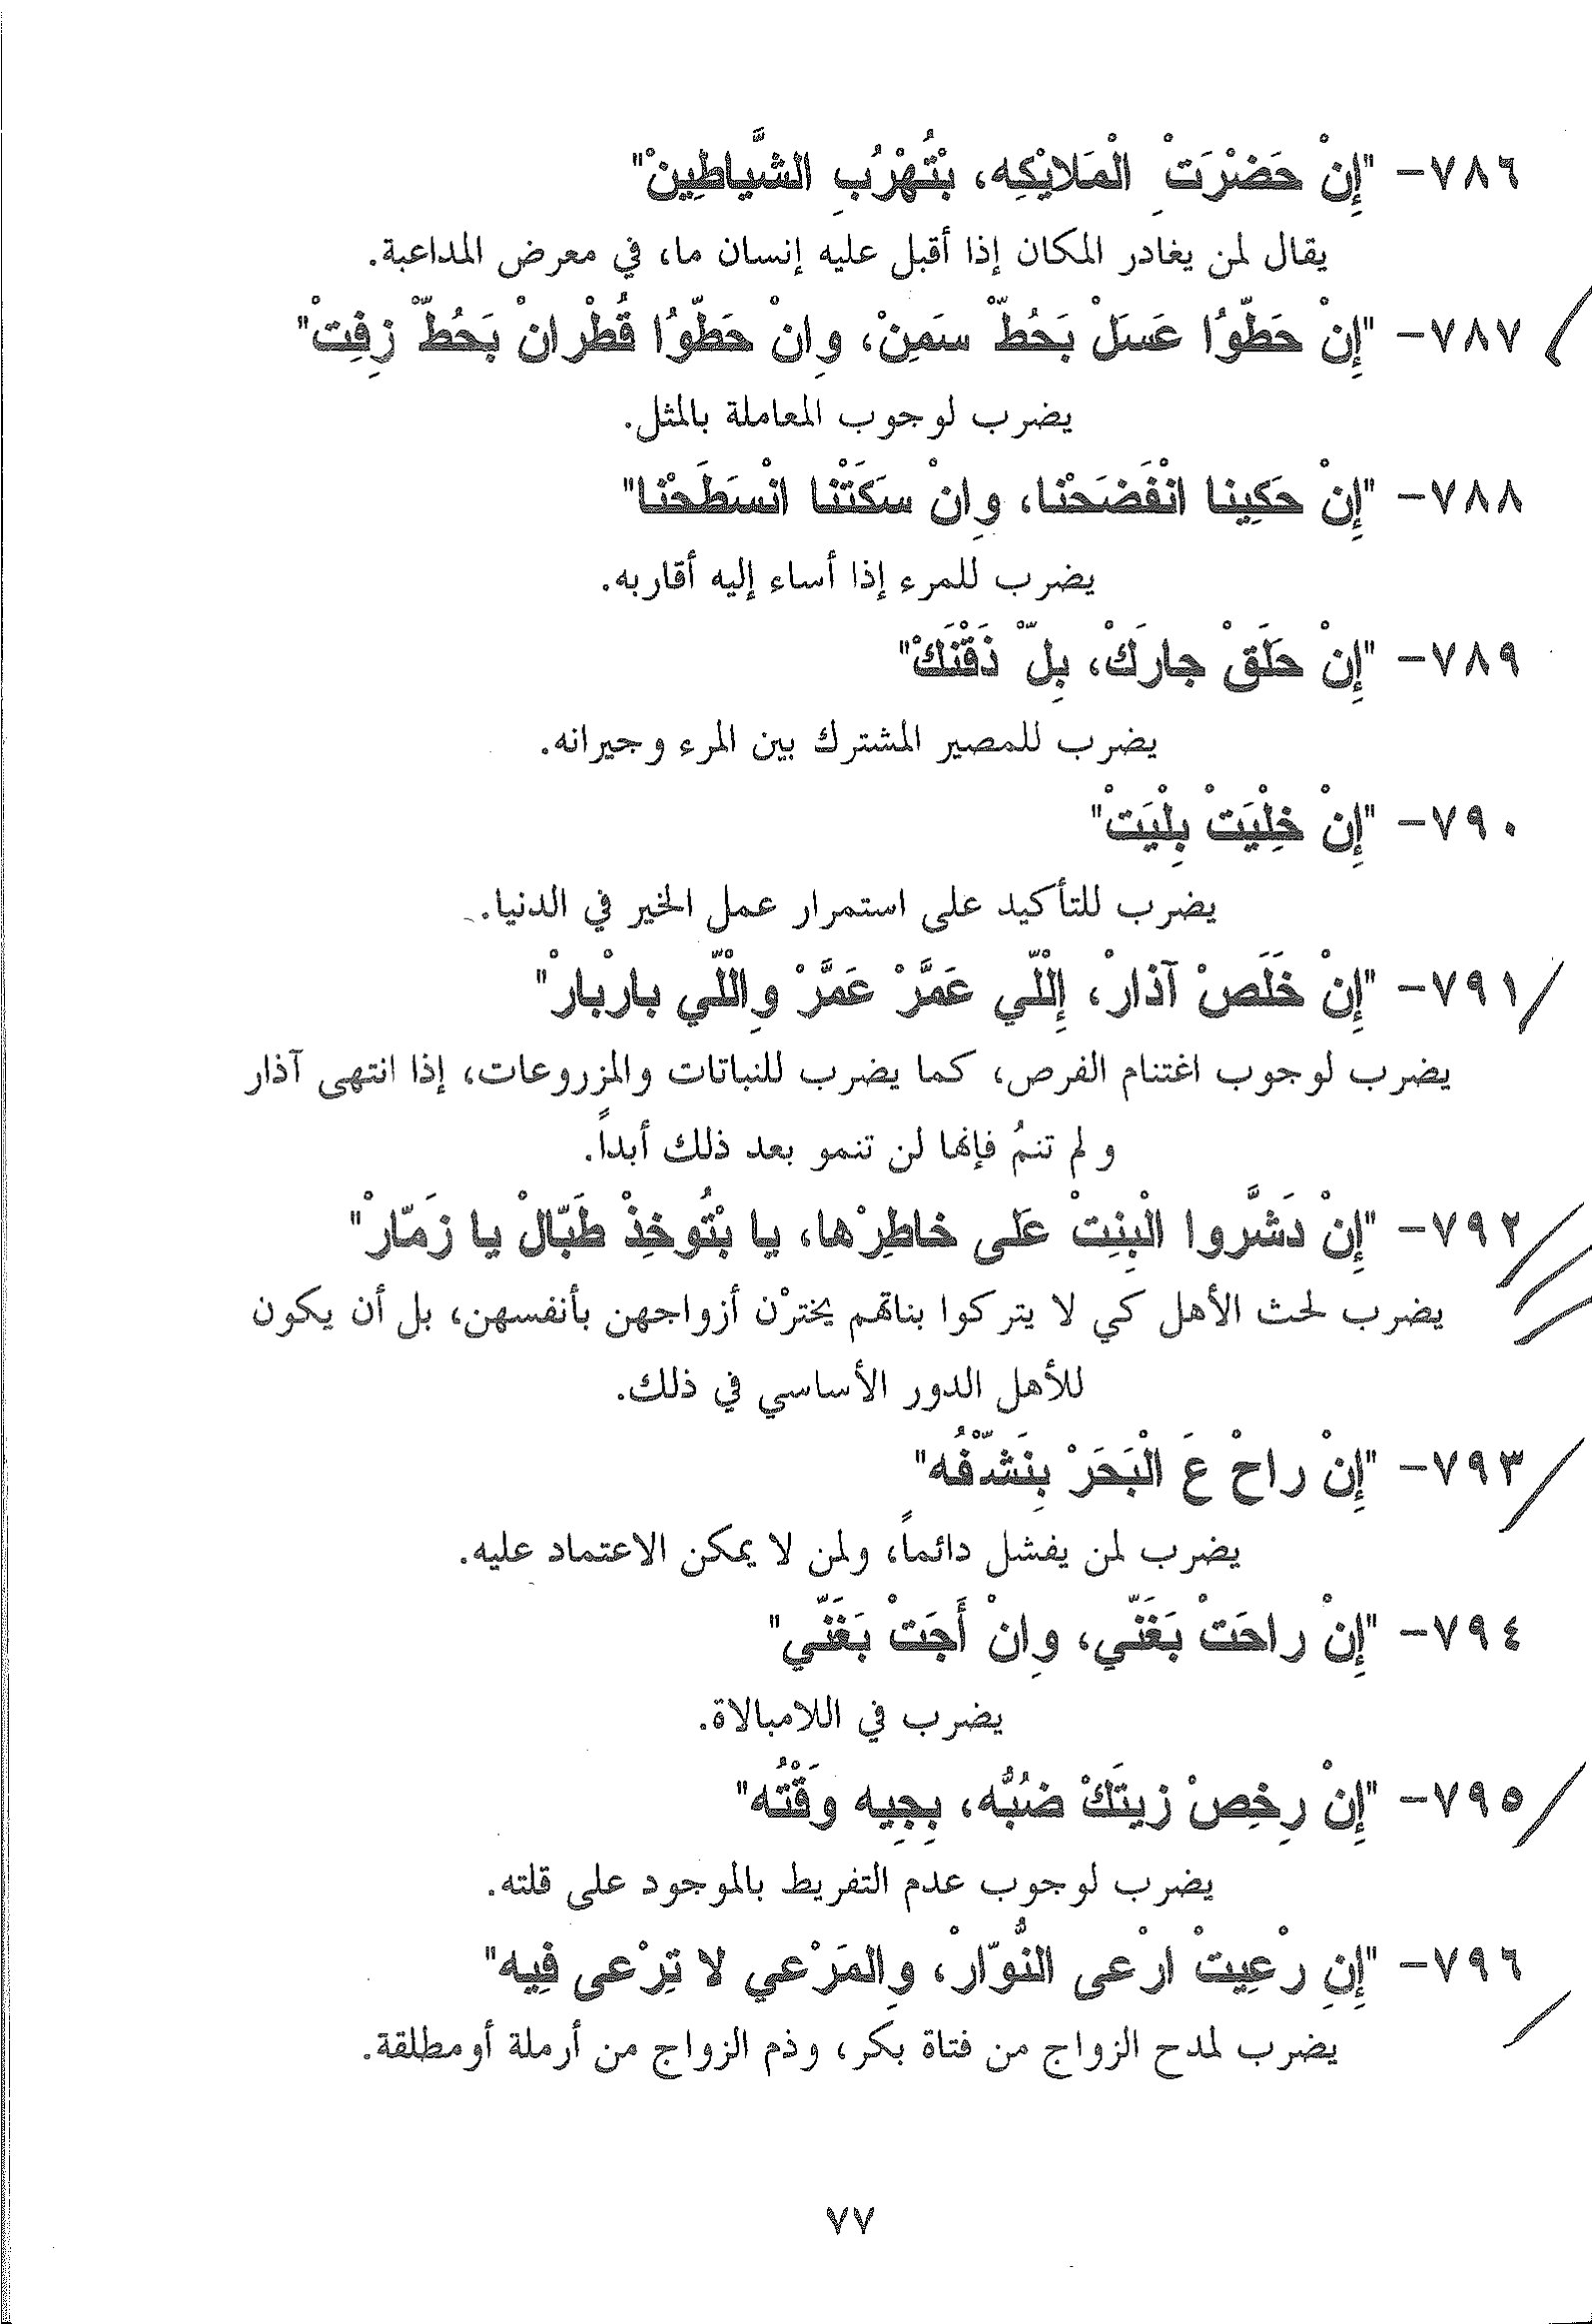 ٧٨٦- "إِنْ حَضْرَتْ ِ الْمَلايْكِه، بْتُهْرُبِ الشَّياطِينْ"
يقال لمن يغادر المكان إذا أقبل عليه إنسان ما، في معرض المداعبة.
٧٨٧- "إِنْ حَطّوُا عَسَلْ بَحُطّْ سَمِنْ، وِانْ حَطّوُا قُطْرانْ بَحُطّْ زِفِتْ"
يضرب لوجوب المعاملة بالمثل.
٧٨٨- "إِنْ حَكِينا انْفَضَحْنا، وِانْ سكَتْنا انْسَطَحْنا"
يضرب للمرء إذا أساء إليه أقاربه.
٧٨٩- "إِنْ حَلَقْ جارَكْ، بِلّْ ذَقْنَكْ"
يضرب للمصير المشترك بين المرء وجيرانه.
٧٩٠- "إِنْ خِلْيَتْ بِلْيَتْ"
يضرب للتأكيد على استمرار عمل الخير في الدنيا.
٧٩١- "إِنْ خَلَصْ آذارْ، إِلْلّي عَمَّرْ عَمَّرْ وِالْلّي بارْبارْ"
يضرب لوجوب اغتنام الفرص، كما يضرب للنباتات والمزروعات، إذا انتهى آذار
و لم تنمُ فإنها لن تنمو بعد ذلك أبداً.
٧٩٢- "إِنْ دَشَّروا الْبِنِتْ عَلى خاطِرْها، يا بْتُوخِذْ طَبّالْ يا زَمّارْ"
يضرب لحث الأهل كي لا يتركوا بناتهم يخترْن أزواجهن بأنفسهن، بل أن يكون
للأهل الدور الأساسي في ذلك.
٧٩٣- "إِنْ راحْ عَ الْبَحَرْ بِنَشّْفُه"
يضرب لمن يفشل دائماً، ولمن لا يمكن الاعتماد عليه.
٧٩٤- "إِنْ راحَتْ بَغَنّي، وِانْ أَجَتْ بَغَنّي"
يضرب في اللامبالاة.
٧٩٥- "إِنْ رِخِصْ زيتَكْ ضُبُّه، بِجِيه وَقْتُه"
يضرب لوجوب عدم التفريط بالموجود على قلته.
٧٩٦- "إِنِ رْعِيتْ ارْعى النُّوّارْ، وِالمَرْعي لا تِرْعى فِيه"
يضرب لمدح الزواج من فتاة بكر، وذم الزواج من أرملة أومطلقة.
٧٧